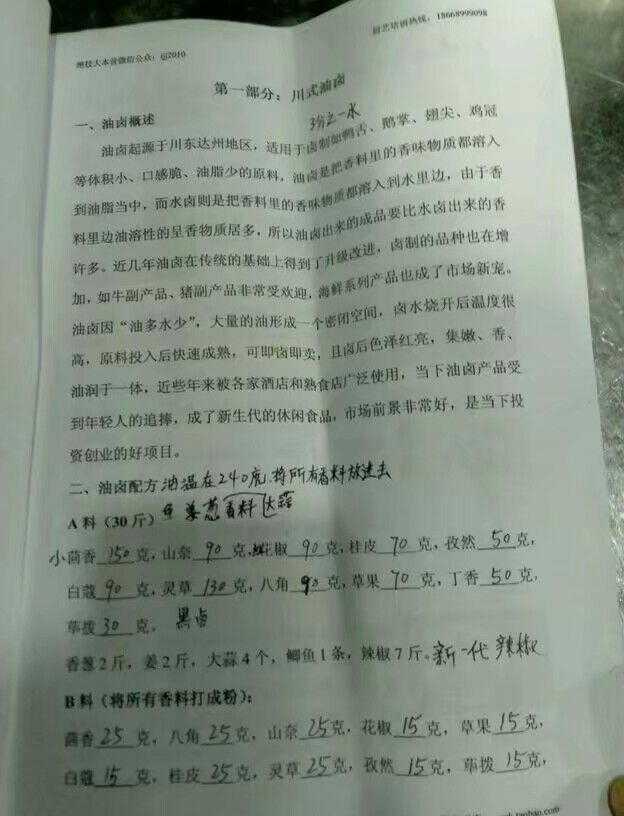 绝技大本营微信公众：qj2010
厨艺培训热线：18668999098
第一部分：川式油卤
一、油卤概述
3分之一水
油卤起源于川东达州地区，适用于卤制如鸭舌、鹅掌、翅尖、鸡冠
等体积小、口感脆、油脂少的原料，油卤是把香料里的香味物质都溶入
到油脂当中，而水卤则是把香料里的香味物质都溶入到水里边，由于香
料里边油溶性的呈香物质居多，所以油卤出来的成品要比水卤出来的香
许多。近几年油卤在传统的基础上得到了升级改进，卤制的品种也在增
加，如牛副产品、猪副产品非常受欢迎，海鲜系列产品也成了市场新宠。
油卤因“油多水少”，大量的油形成一个密闭空间，卤水烧开后温度很
高，原料投入后快速成熟，可即卤即卖，且卤后色泽红亮，集嫩、香、
油润于一体，近些年来被各家酒店和熟食店广泛使用，当下油卤产品受
到年轻人的追捧，成了新生代的休闲食品，市场前景非常好，是当下投
资创业的好项目。
二、油卤配方 油温在240度.将所有香料放进去
A 料（30 斤） 姜葱香料大蒜
小茴香 150 克，山奈 90 克，花椒 90 克，桂皮 70 克，孜然 50 克，
白蔻 90 克，灵草 130 克，八角 90 克，草果 70 克，丁香 50 克，
荜拨 30 克。
香葱 2 斤，姜 2 斤，大蒜 4 个，鲫鱼 1 条，辣椒 7 斤。新一代辣椒
B 料（将所有香料打成粉）：
茴香 25 克，八角 25 克，山奈 25 克，花椒 15 克，草果 15 克，
白蔻 15 克，桂皮 25 克，灵草 25 克，孜然 15 克，荜拨 15 克，
taobao.com